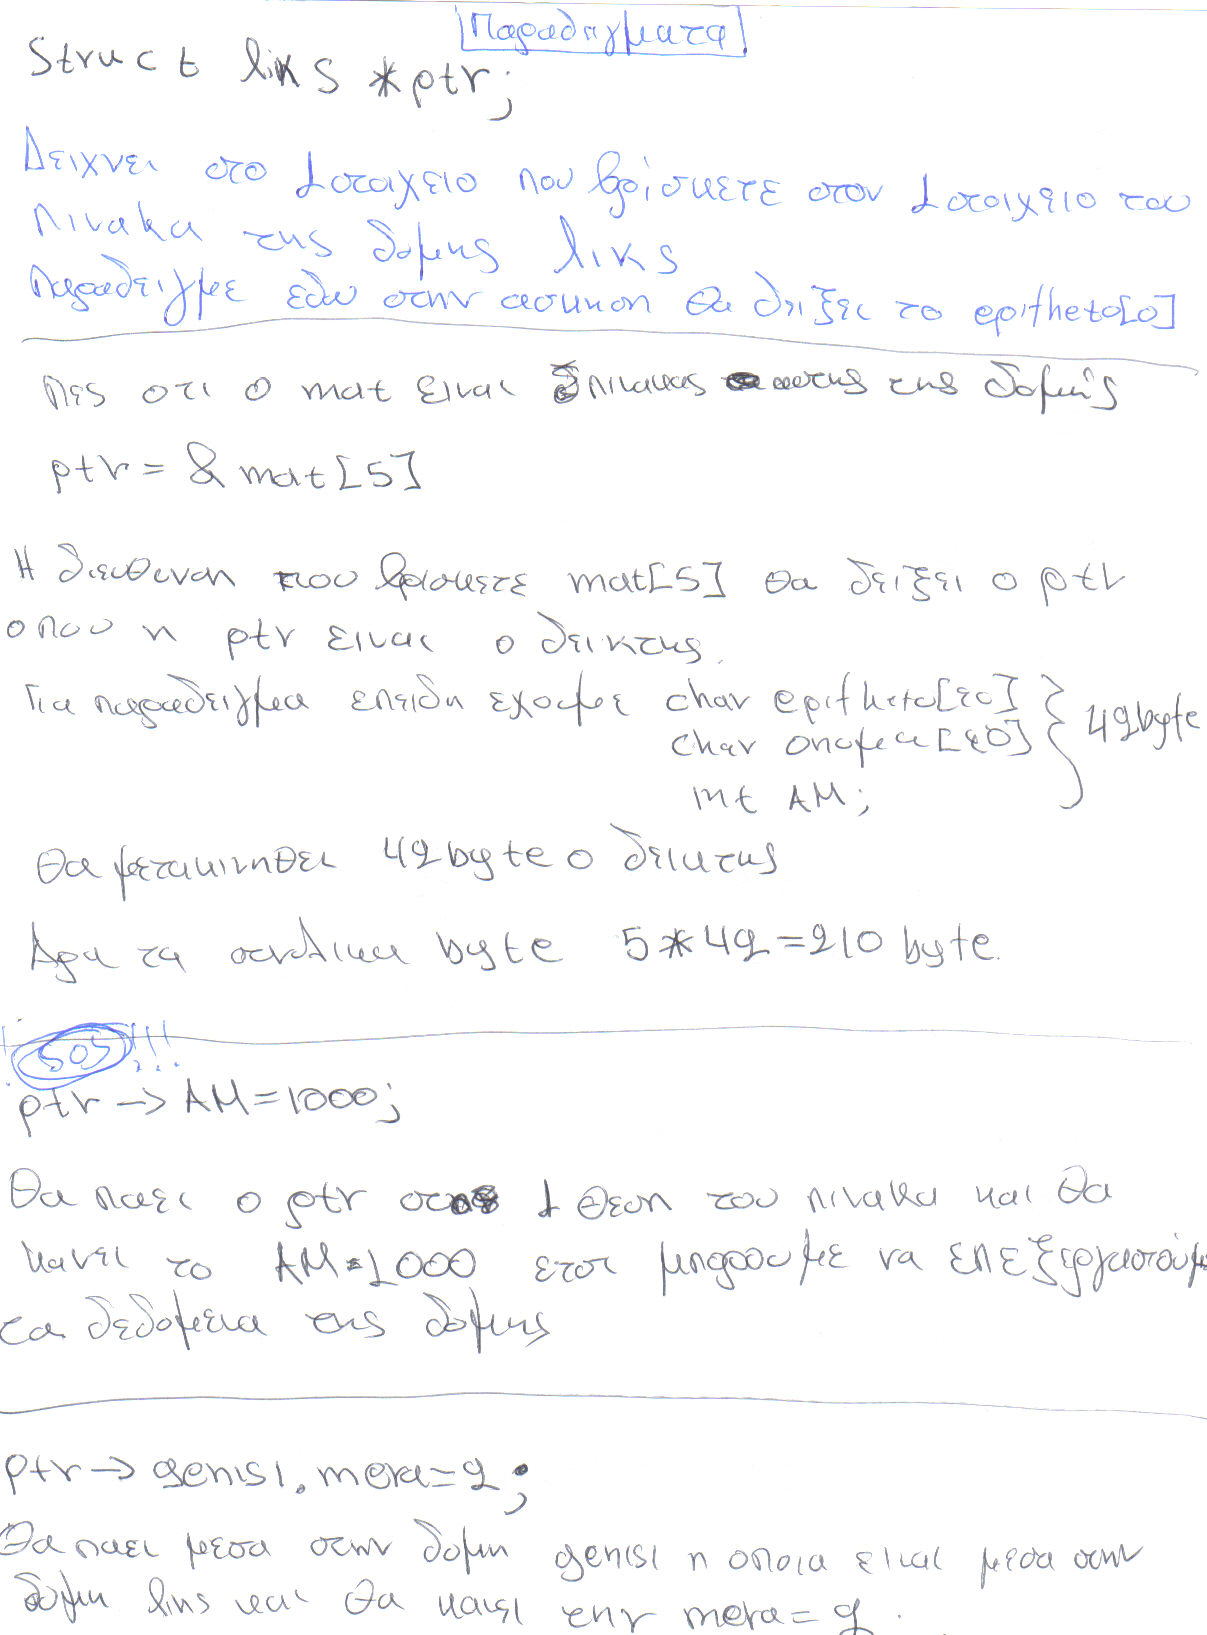 Παραδειγματα
Struct liks *ptr;
Δειχνει στο 1 στοιχειο που βρίσκετε στον 1 στοιχειο του
πινακα της δομης liks
παραδειγμε εδω στην ασκηση θα δειξει το epitheto[0]
Πες οτι ο mat ειναι πινακας της δομής
ptr = & mat[5]
Η διευθυνση που βρισκετε mat[5] θα δειξει ο ptr
οπου η ptr ειναι ο δεικτης.
Για παραδειγμα επειδη εχουμε char epitheto[20]
char onoma[20] } 42byte
int AM;
Θα μετακινηθει 42byte ο δεικτης
Αρα τα συνολικα byte 5*42=210 byte.
SOS!!!
ptr -> AM=1000;
Θα παει ο ptr 1 θεση του πινακα και θα
κανει το AM=1000 ετσι μπορουμε να επεξεργαστούμ
τα δεδομενα της δομης
ptr -> genisi.mera=2;
Θα παει μεσα στην δομη genisi η οποια ειναι μεσα στην
δομη liks και θα κανει την mera=2.